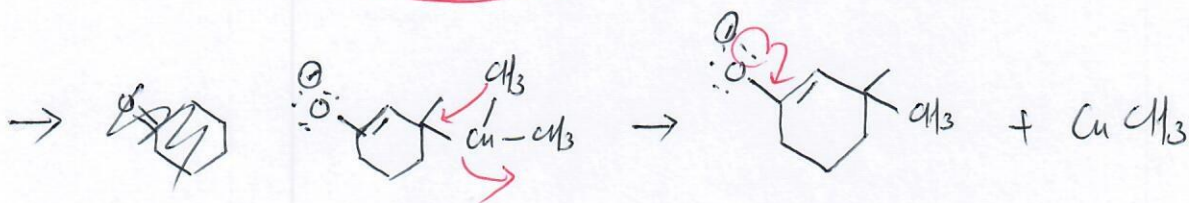 CH3
→ ⊖ :O: Cu - CH3 → ⊖ :O: CH3 + Cu CH3